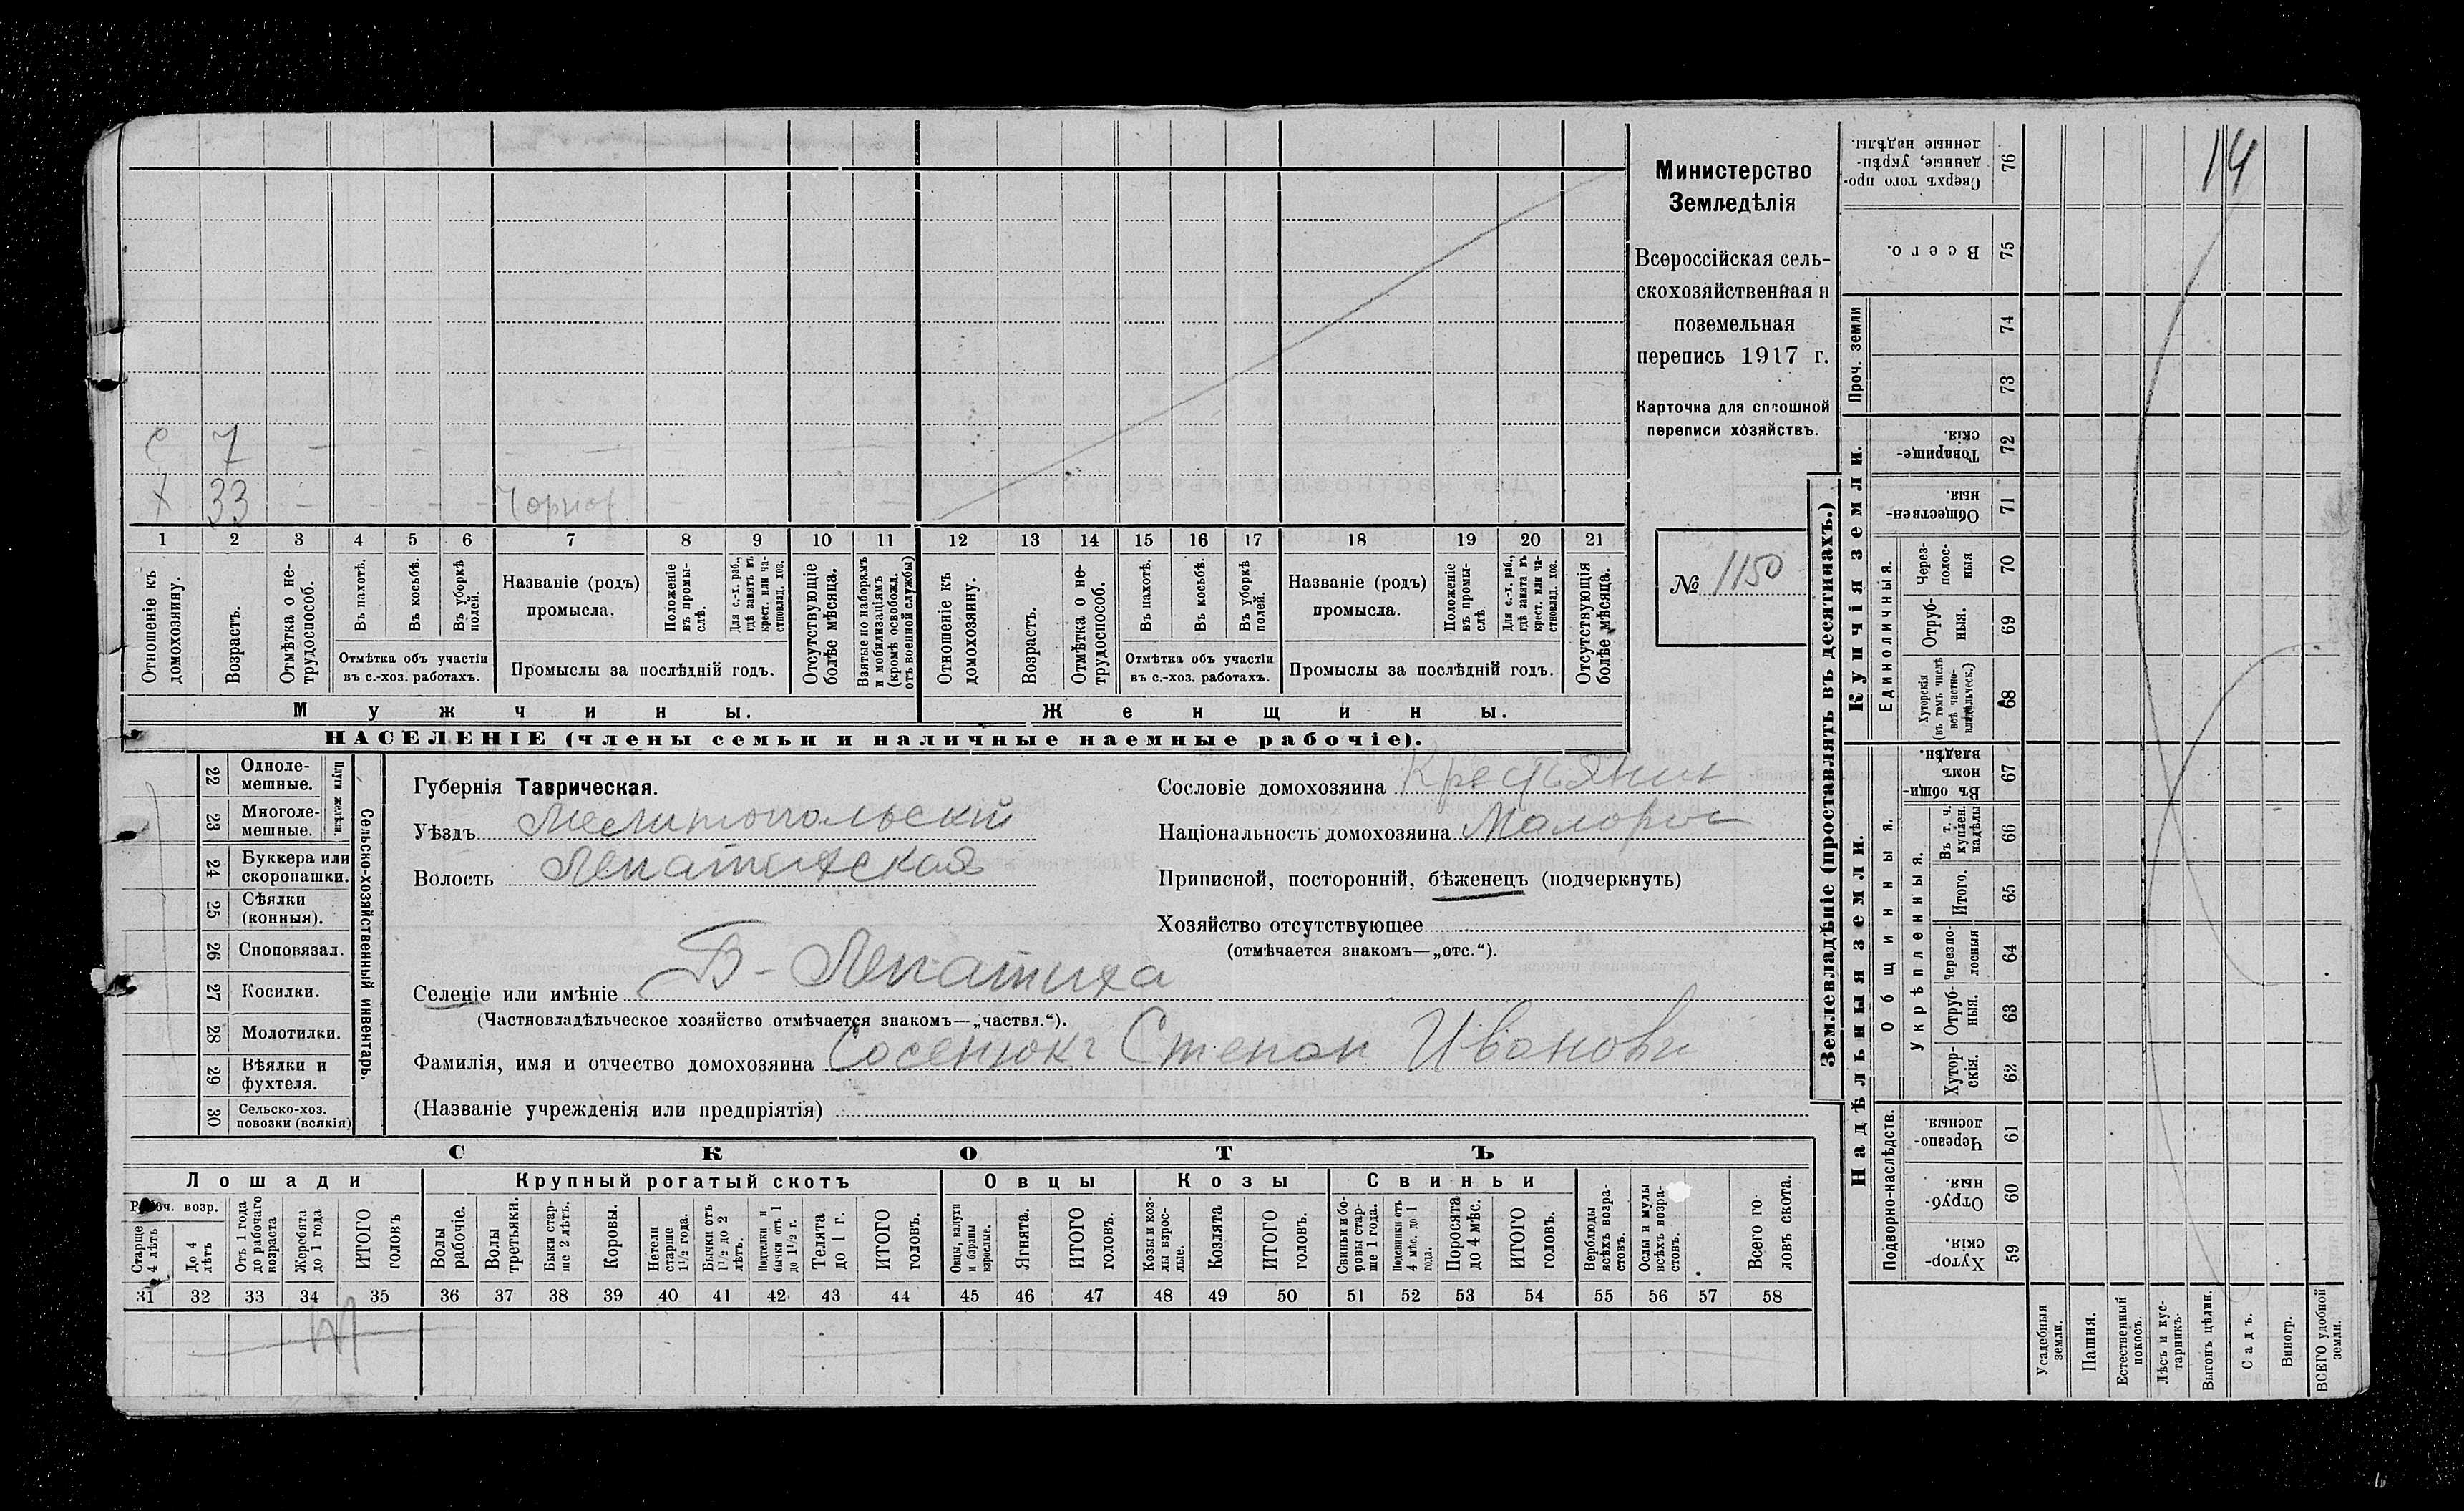 14
Министерство
Земледѣлія
Всероссійская сель-
скохозяйственная и
поземельная
перепись 1917 г.
Карточка для сплошной
переписи хозяйствъ.
№ 1150
С 7 - - - -
Х 33 - - - - Чорнор
1 2 3 4 5 6 7 8 9 10 11 12 13 14 15 16 17 18 19 20 21
Отношеніе къ домохозяину.
Возрастъ.
Отмѣтка о не-трудоспособ.
Въ пахотѣ.
Въ косьбѣ.
Въ уборкѣ полей.
Отмѣтка объ участіи
въ с.-хоз. работахъ.
Названіе (родъ)
промысла.
Положеніе въ промы-слѣ.
Для с.-х. раб., гдѣ занятъ въ крест. или ча-стновлад. хоз.
Промыслы за послѣдній годъ.
Отсутствующіе болѣе мѣсяца.
Взятые по наборамъ и мобилизаціямъ (кромѣ освобожл. отъ военной службы)
Отношеніе къ домохозяину.
Возрастъ.
Отмѣтка о не-трудоспособ.
Въ пахотѣ.
Въ косьбѣ.
Въ уборкѣ полей.
Отмѣтка объ участіи
въ с.-хоз. работахъ.
Названіе (родъ)
промысла.
Положеніе въ промы-слѣ
Для с.-х. раб., гдѣ занята въ крест. или ча-стновлад. хоз.
Промыслы за послѣдній годъ.
Отсутствующія болѣе мѣсяца.
Мужчины.
Женщины.
НАСЕЛЕНІЕ (члены семьи и наличные наемные рабочіе).
22 Одноле-мешные.
23 Многоле-мешные.
Плуги желѣзн.
24 Буккера или скоропашки.
25 Сѣялки (конныя).
26 Сноповязал.
27 Косилки.
28 Молотилки.
29 Вѣялки и фухтеля.
30 Сельско-хоз. повозки (всякія)
Сельско-хозяйственный инвентарь.
Губернія Таврическая.
Уѣздъ Мелитопольскій
Волость Лепатихская
Сословіе домохозяина Крестьянин
Національность домохозяина Малорос
Приписной, посторонній, бѣженецъ (подчеркнуть)
Хозяйство отсутствующее
(отмѣчается знакомъ—„отс.“).
Селеніе или имѣніе Б-Лепатиха
(Частновладѣльческое хозяйство отмѣчается знакомъ—„частвл.“).
Фамилія, имя и отчество домохозяина Сосенюкъ Степан Иванови
(Названіе учрежденія или предпріятія)
СКОТЪ
Лошади
Крупный рогатый скотъ
Овцы
Козы
Свиньи
Рабоч. возр.
Старше 4 лѣтъ
До 4 лѣтъ
Отъ 1 года до рабочаго возраста
Жеребята до 1 года
ИТОГО головъ
Волы рабочіе.
Волы третьяки.
Быки стар-ше 2 лѣтъ.
Коровы.
Нетели старше 1½ года.
Бычки отъ 1½ до 2 лѣтъ.
Подтелки и бычки отъ 1 до 1½ г.
Телята до 1 г.
ИТОГО головъ.
Овцы, валухи и бараны взрослые.
Ягнята.
ИТОГО головъ.
Козы и коз-лы взрос-лые.
Козлята
ИТОГО головъ.
Свиньи и бо-ровы стар-ше 1 года.
Подсвинки отъ 4 мѣс. до 1 года.
Поросята до 4 мѣс.
ИТОГО головъ.
Верблюды всѣхъ возра-стовъ.
Ослы и мулы всѣхъ возра-стовъ.
Всего го-ловъ скота.
31 32 33 34 35 36 37 38 39 40 41 42 43 44 45 46 47 48 49 50 51 52 53 54 55 56 57 58
Землевладѣніе (проставлять въ десятинахъ.)
Надѣльныя земли.
Купчія земли.
Проч. земли
Подворно-наслѣдств.
Общинныя.
Укрѣпленныя.
Единоличныя.
Сверхъ того про-данные, укрѣп-ленные надѣлы. 76
Всего. 75
74
73
Товарище-скія. 72
Обществен-ныя. 71
Через-полос-ныя 70
Отруб-ныя. 69
Хуторскія (въ томъ числѣ всѣ частно-владѣльческ.) 68
Въ общи-номъ владѣн. 67
Въ т. ч. куплен. надѣлы 66
Итого. 65
Черезпо-лосныя 64
Отруб-ныя. 63
Хутор-скія. 62
Черезпо-лосныя. 61
Отруб-ныя. 60
Хутор-скія. 59
Усадебныя земли.
Пашня.
Естественный покосъ.
Лѣсъ и кус-тарникъ.
Выгонъ цѣлин.
Садъ.
Виногр.
ВСЕГО удобной земли.